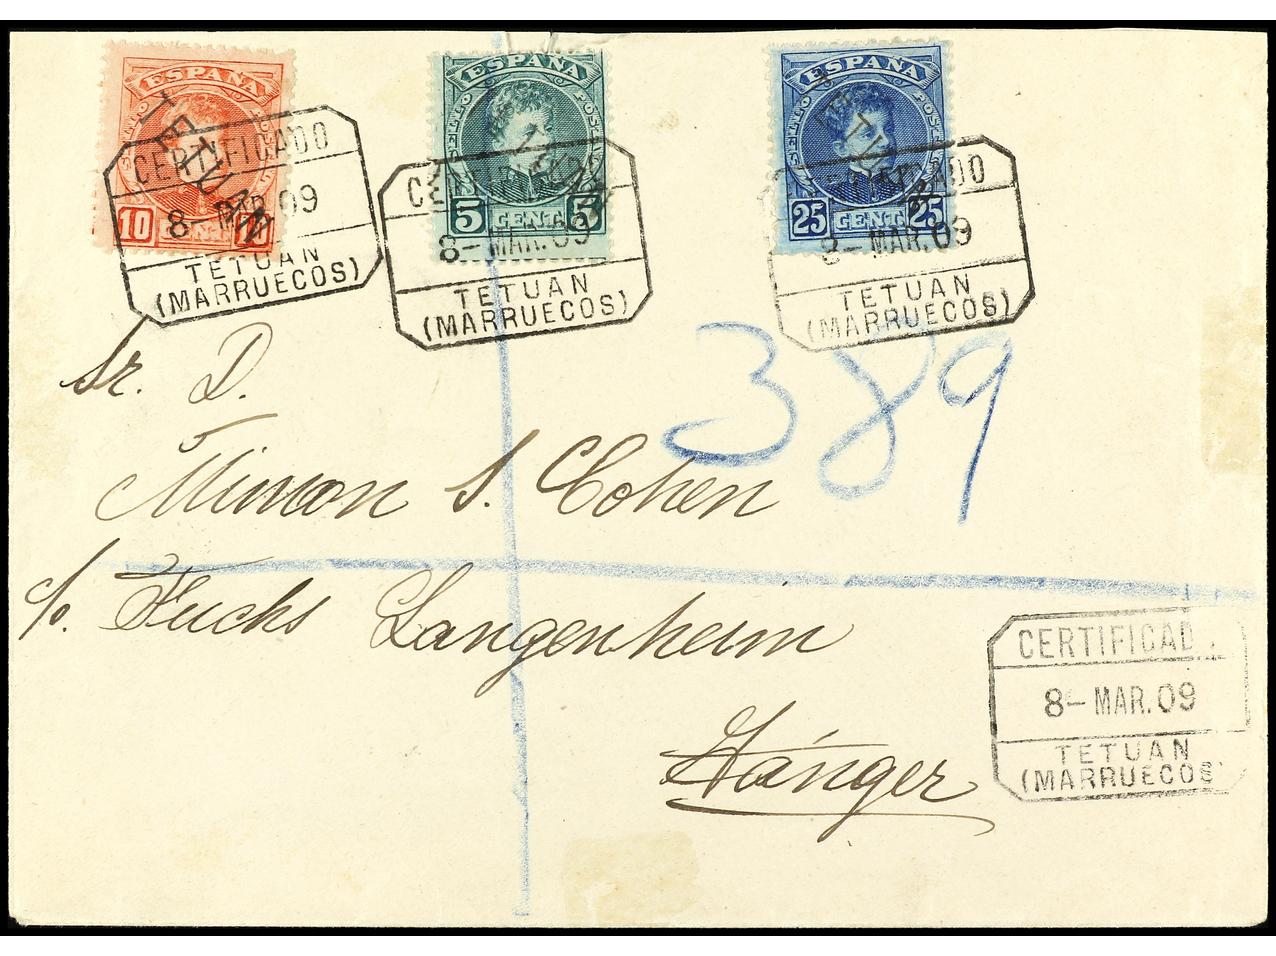 ESPAÑA
ESPAÑA
ESPAÑA
TETUAN
TETUAN
TETUAN
10 CENT 10
5 CENT 5
25 CENT 25
CERTIFICADO
8- MAR. 09
TETUAN
(MARRUECOS)
CERTIFICADO
8- MAR. 09
TETUAN
(MARRUECOS)
CERTIFICADO
8- MAR. 09
TETUAN
(MARRUECOS)
389
Sr. D.
Mimon S. Cohen
c/o. Fuchs Langenheim
Tánger
CERTIFICAD
8- MAR. 09
TETUAN
(MARRUECOS